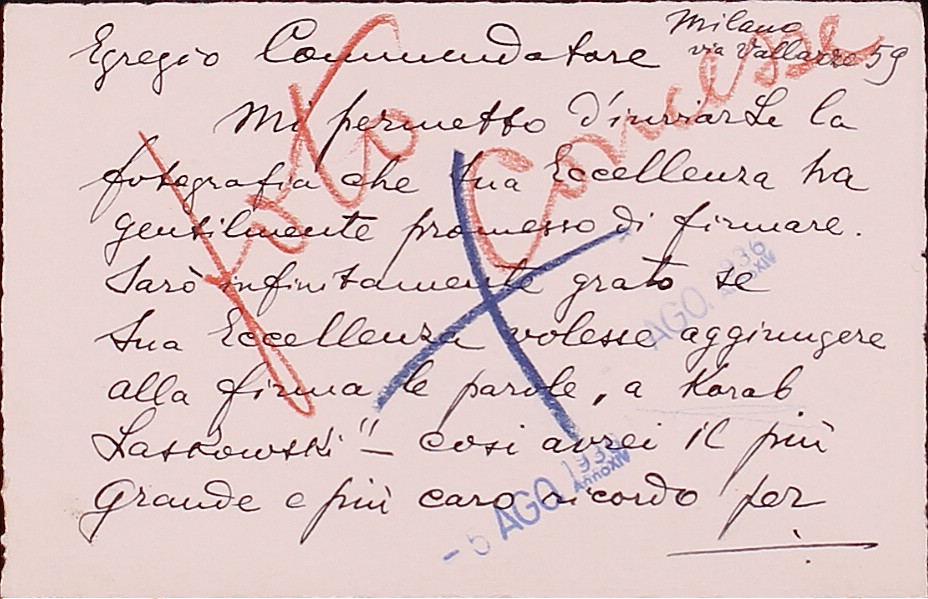 Milano
via Vallazze 59
Egregio Commendatore
Mi permetto d'inviarLe la
fotografia che Sua Eccellenza ha
gentilmente promesso di firmare.
Sarò infinitamente grato se
Sua Eccellenza volesse aggiungere
alla firma le parole, „a Korab
Laskowski" – così avrei il più
grande e più caro ricordo per
foto Concessa
AGO. 1936
Anno XIV
- 5 AGO. 1936
Anno XIV